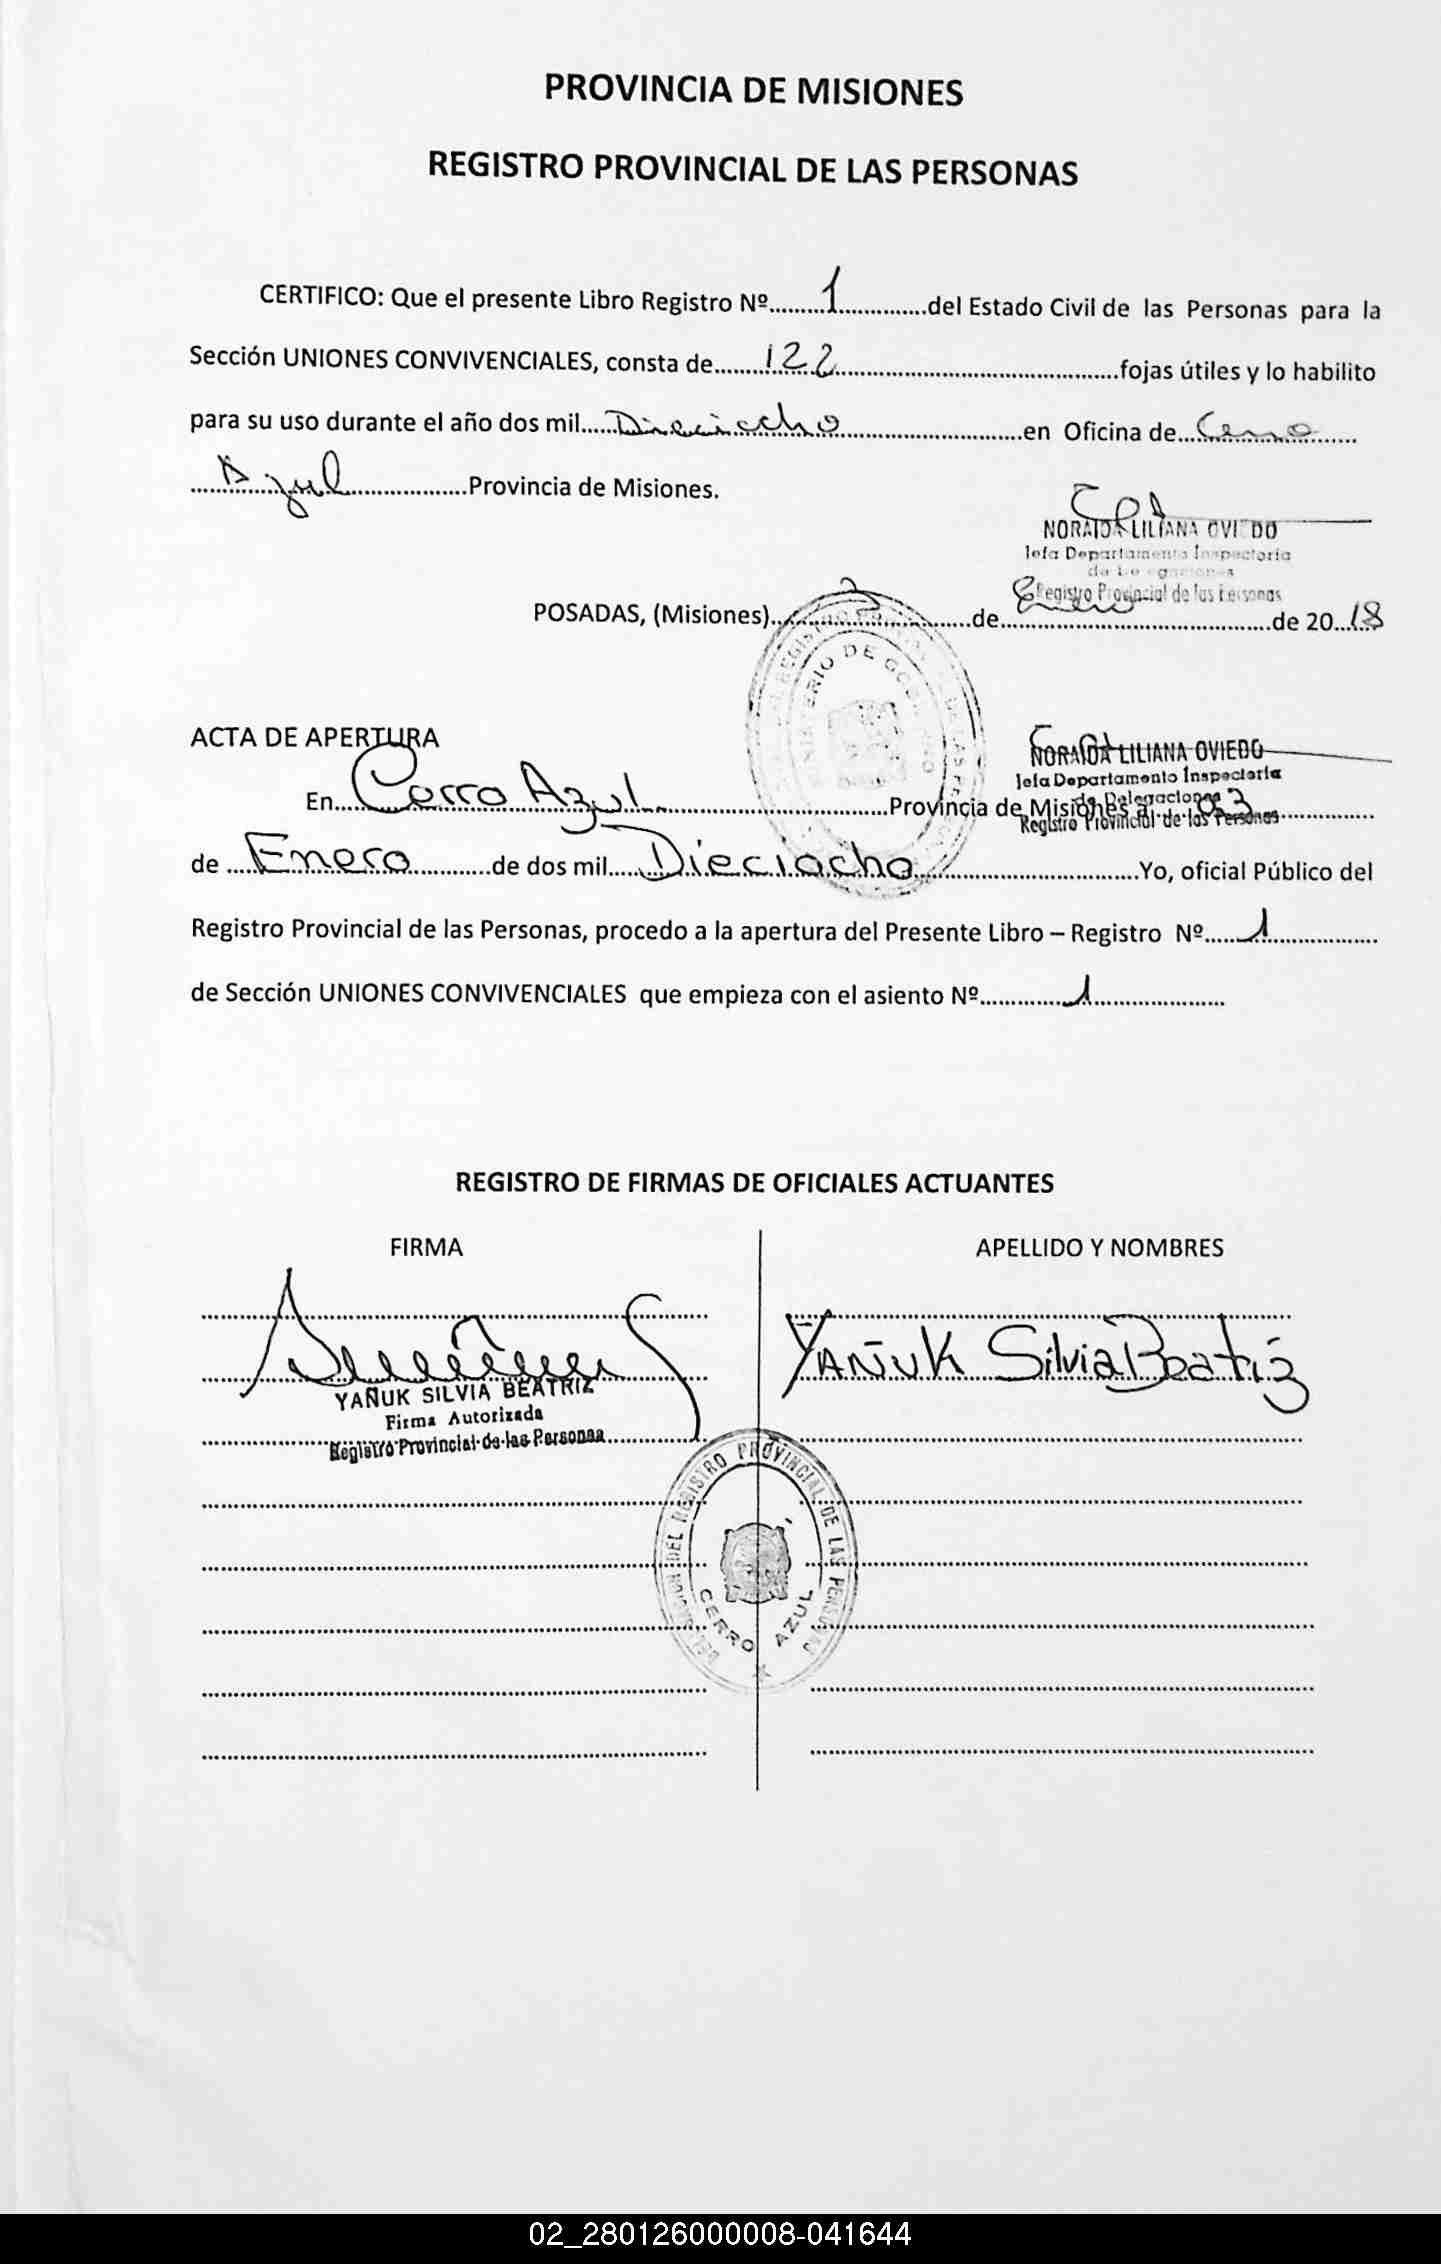 PROVINCIA DE MISIONES
REGISTRO PROVINCIAL DE LAS PERSONAS
CERTIFICO: Que el presente Libro Registro Nº.........1.............del Estado Civil de las Personas para la
Sección UNIONES CONVIVENCIALES, consta de.......122..........................................fojas útiles y lo habilito
para su uso durante el año dos mil......Dieciocho...........................en Oficina de...Cerro......
..........Azul..................Provincia de Misiones.
NORAIDA LILIANA OVIEDO
Jefa Departamento Inspectoria
de Delegaciones
Registro Provincial de las Personas
POSADAS, (Misiones)..........3..............de.....Enero.....................de 20...18
MINISTERIO DE GOBIERNO
ACTA DE APERTURA
NORAIDA LILIANA OVIEDO
Jefa Departamento Inspectoria
de Delegaciones
Registro Provincial de las Personas
En.......Cerro Azul.................................Provincia de Misiones a.......03...................
de .....Enero...............de dos mil......Dieciocho..................................Yo, oficial Público del
Registro Provincial de las Personas, procedo a la apertura del Presente Libro – Registro Nº......1..................
de Sección UNIONES CONVIVENCIALES que empieza con el asiento Nº..............1....................
REGISTRO DE FIRMAS DE OFICIALES ACTUANTES
FIRMA APELLIDO Y NOMBRES
YAÑUK Silvia Beatriz
YAÑUK SILVIA BEATRIZ
Firma Autorizada
Registro Provincial de las Personas
DEL REGISTRO PROVINCIAL DE LAS PERSONAS
CERRO AZUL
02_280126000008-041644